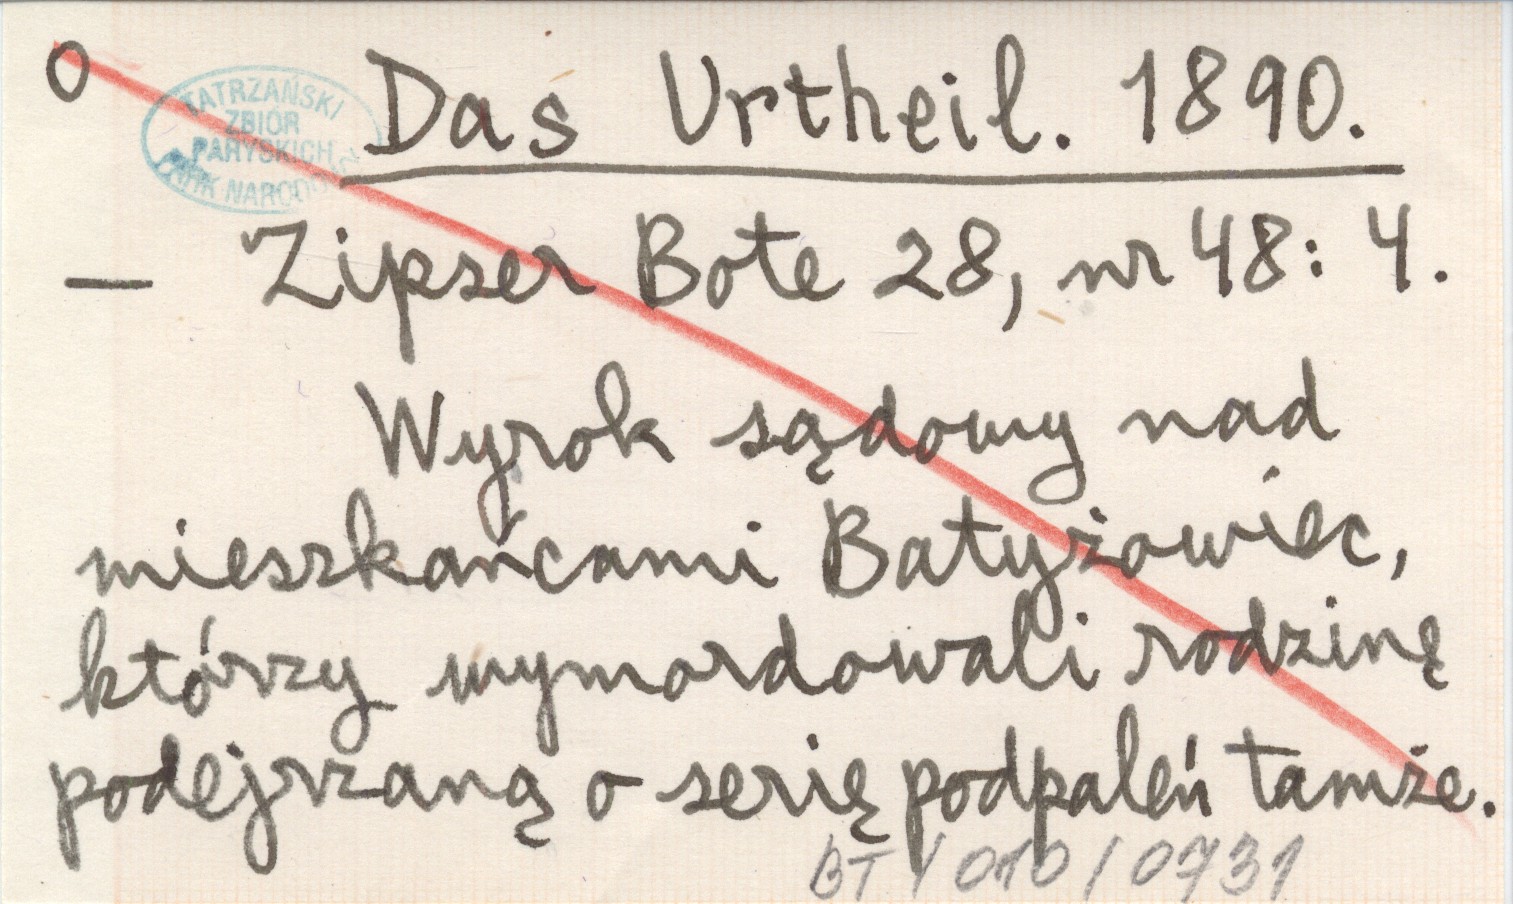 O Das Urtheil. 1890.
TATRZAŃSKI
ZBIÓR
PARYSKICH
PARK NARODOWY
— Zipser Bote 28, nr 48: 4.
Wyrok sądowy nad
mieszkańcami Batyżowiec,
którzy wymordowali rodzinę
podejrzaną o serię podpaleń tamże.
BT / 010 / 0731